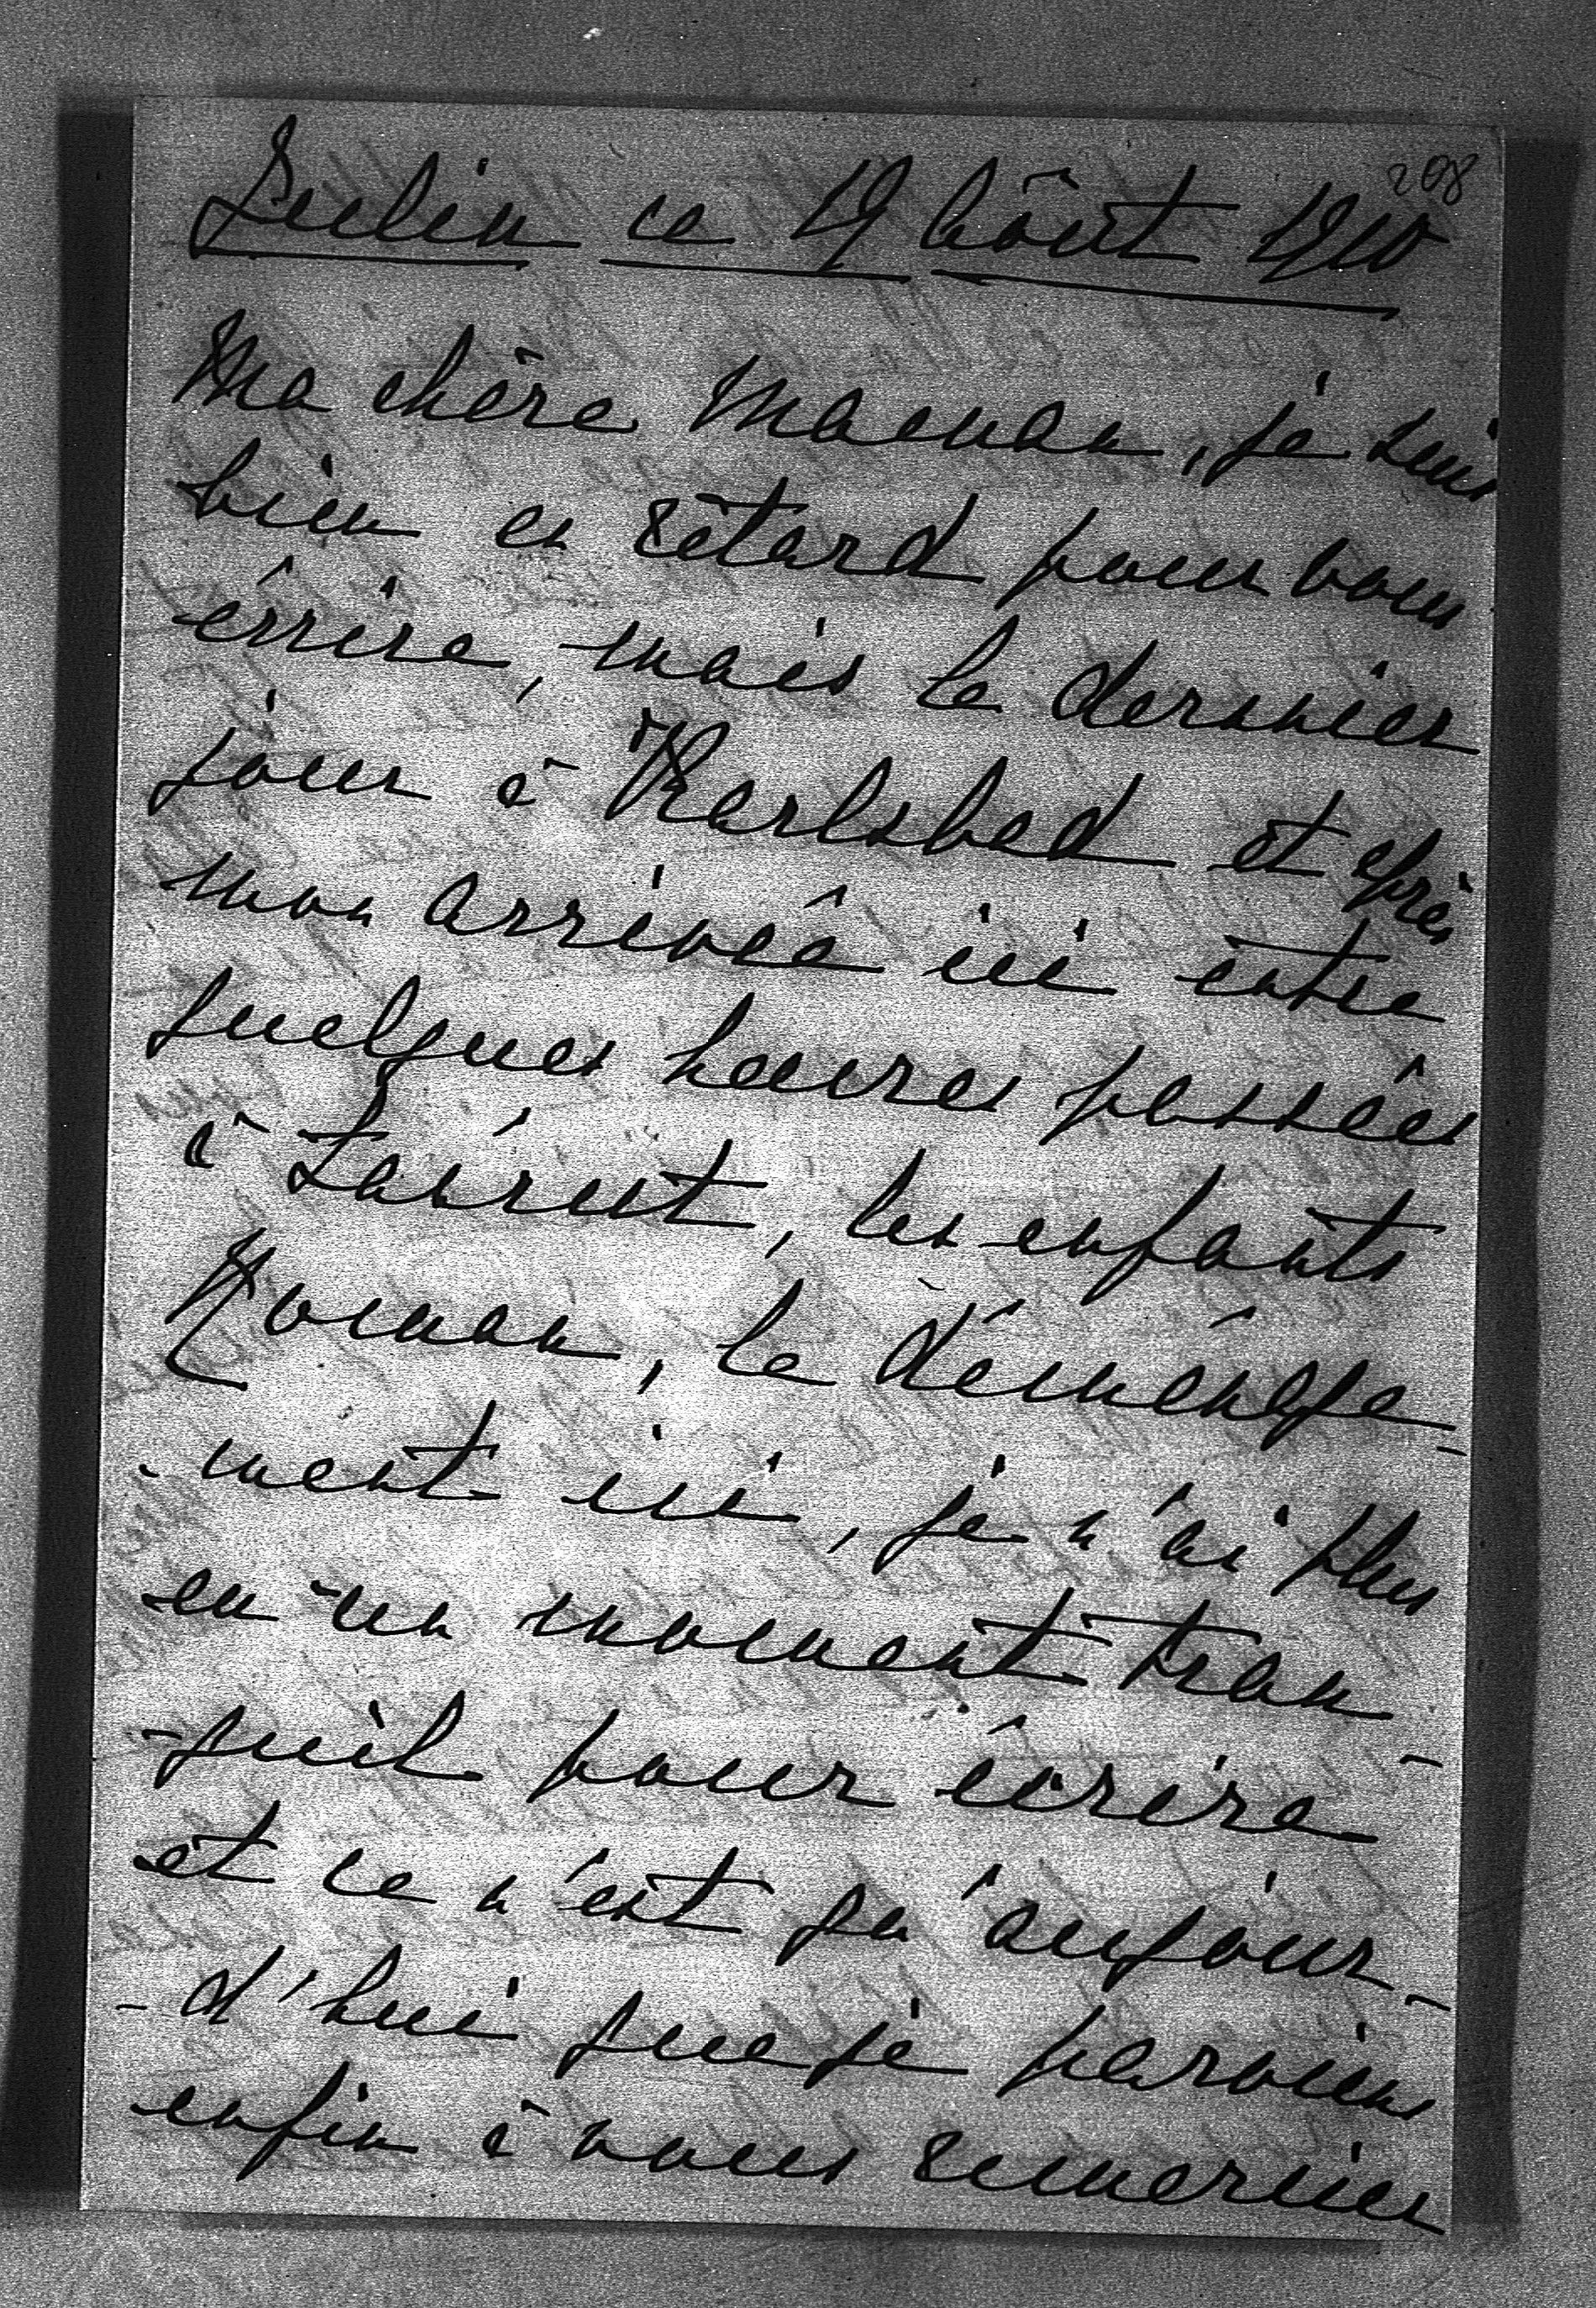 208
ce 19 Août 1910
Ma chère Maman, je suis
bien en rétard pour vous
écrire, mais le dernier
jour à Karlsbad et après
mon arrivée ici entre
quelques heures passées
à Łańcut, les enfants
Roman, le déménage=
ment ici, je n'ai plus
eu un moment tran-
-quil pour écrire
et ce n'est qu'aujour-
-d'hui que je parviens
enfin à vous remercier